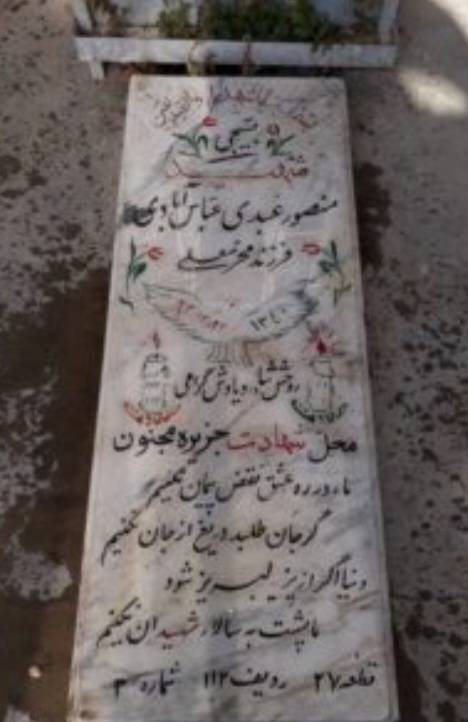 بسیجی
شهید
منصور عبدی عباس آبادی
فرزند محرمعلی
۱۳۴۰
روحش شاد و یادش گرامی
محل شهادت جزیره مجنون
ما در ره عشق نقض پیمان نکنیم
گر جان طلبد دریغ از جان نکنیم
دنیا اگر از یزید لبریز شود
ما پشت به سالار شهیدان نکنیم
قطعه ۲۷ ردیف ۱۱۲ شماره ۳